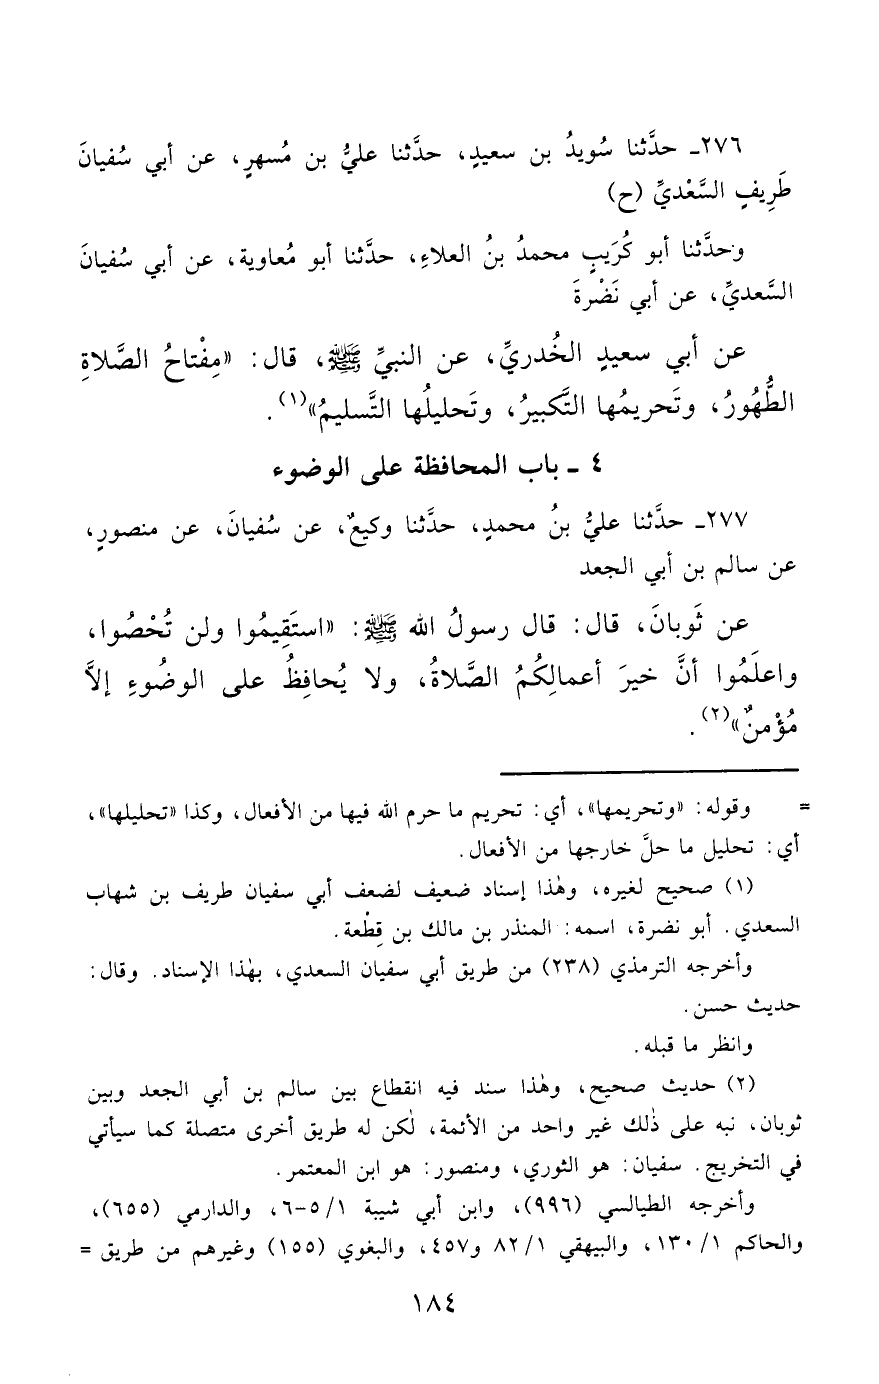 ٢٧٦ـ حدَّثنا سُويدُ بن سعيدٍ، حدَّثنا عليُّ بن مُسهرٍ، عن أبي سُفيانَ
طَرِيفٍ السَّعْديِّ (ح)
وحدَّثنا أبو كُرَيبٍ محمدُ بنُ العلاءِ، حدَّثنا أبو مُعاوية، عن أبي سُفيانَ
السَّعديِّ، عن أبي نَضْرةَ
عن أبي سعيدٍ الخُدريِّ، عن النبيِّ ﷺ، قال: «مِفْتاحُ الصَّلاةِ
الطُّهُورُ، وتَحريمُها التَّكبيرُ، وتَحليلُها التَّسليمُ»(١).
٤ ـ باب المحافظة على الوضوء
٢٧٧ـ حدَّثنا عليُّ بنُ محمدٍ، حدَّثنا وكيعٌ، عن سُفيانَ، عن منصورٍ،
عن سالم بن أبي الجعد
عن ثَوبانَ، قال: قال رسولُ الله ﷺ: «استَقِيمُوا ولن تُحْصُوا،
واعلَمُوا أنَّ خيرَ أعمالِكُمُ الصَّلاةُ، ولا يُحافِظُ على الوضُوءِ إلاَّ
مُؤْمنٌ»(٢).
= وقوله: «وتحريمها»، أي: تحريم ما حرم الله فيها من الأفعال، وكذا «تحليلها»،
أي: تحليل ما حلَّ خارجها من الأفعال.
(١) صحيح لغيره، وهٰذا إسناد ضعيف لضعف أبي سفيان طريف بن شهاب
السعدي. أبو نضرة، اسمه: المنذر بن مالك بن قِطْعة.
وأخرجه الترمذي (٢٣٨) من طريق أبي سفيان السعدي، بهٰذا الإسناد. وقال:
حديث حسن.
وانظر ما قبله.
(٢) حديث صحيح، وهٰذا سند فيه انقطاع بين سالم بن أبي الجعد وبين
ثوبان، نبه على ذٰلك غير واحد من الأئمة، لٰكن له طريق أخرى متصلة كما سيأتي
في التخريج. سفيان: هو الثوري، ومنصور: هو ابن المعتمر.
وأخرجه الطيالسي (٩٩٦)، وابن أبي شيبة ١/ ٥-٦، والدارمي (٦٥٥)،
والحاكم ١/ ١٣٠، والبيهقي ١/ ٨٢ و٤٥٧، والبغوي (١٥٥) وغيرهم من طريق =
١٨٤